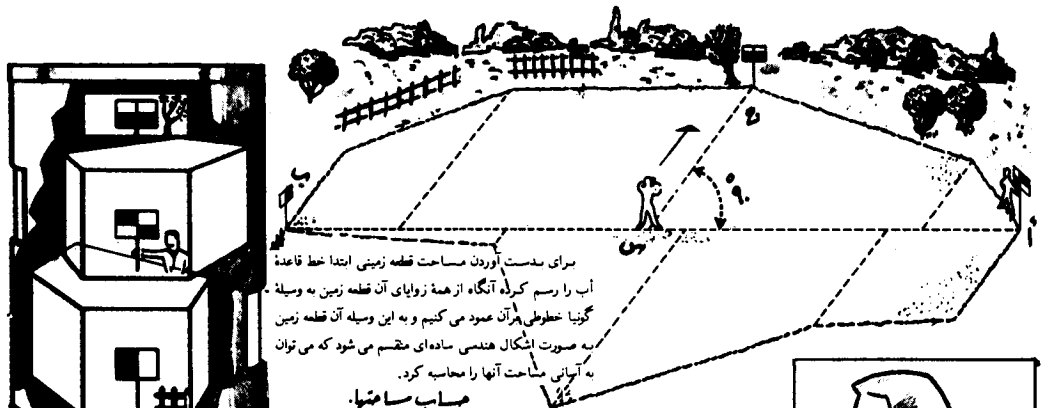 ب
ج
۹۰°
س
أ
برای بدست آوردن مساحت قطعه زمینی ابتدا خط قاعدهٔ
أب را رسم کرده آنگاه از همهٔ زوایای آن قطعه زمین به وسیلهٔ
گونیا خطوطی برآن عمود می کنیم و به این وسیله آن قطعه زمین
به صورت اشکال هندسی ساده‌ای منقسم می شود که می توان
به آسانی مساحت آنها را محاسبه کرد.
حساب مساحتها.